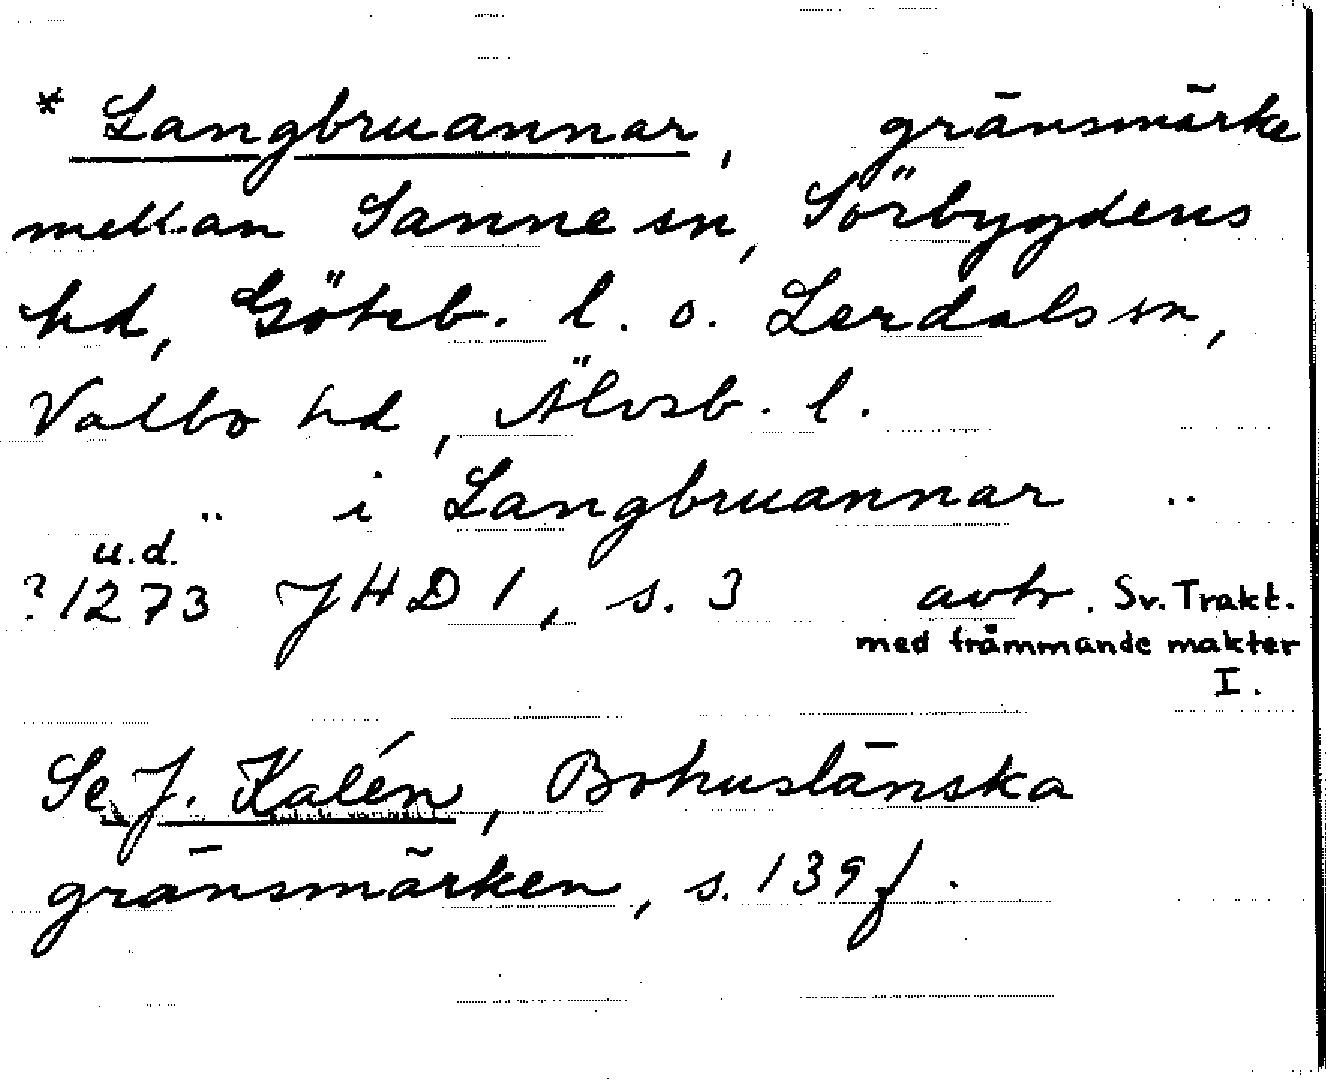 * Langbruannar, gränsmärke
mellan Sanne sn, Sörbygdens
hd, Göteb. l. o. Lerdals sn,
Valbo hd, Älvsb. l.
.. i Langbruannar ..
u.d.
?1273 JHD 1, s. 3 avtr. Sv. Trakt.
med främmande makter
I.
Se J. Kalén, Bohuslänska
gränsmärken, s. 139 f.